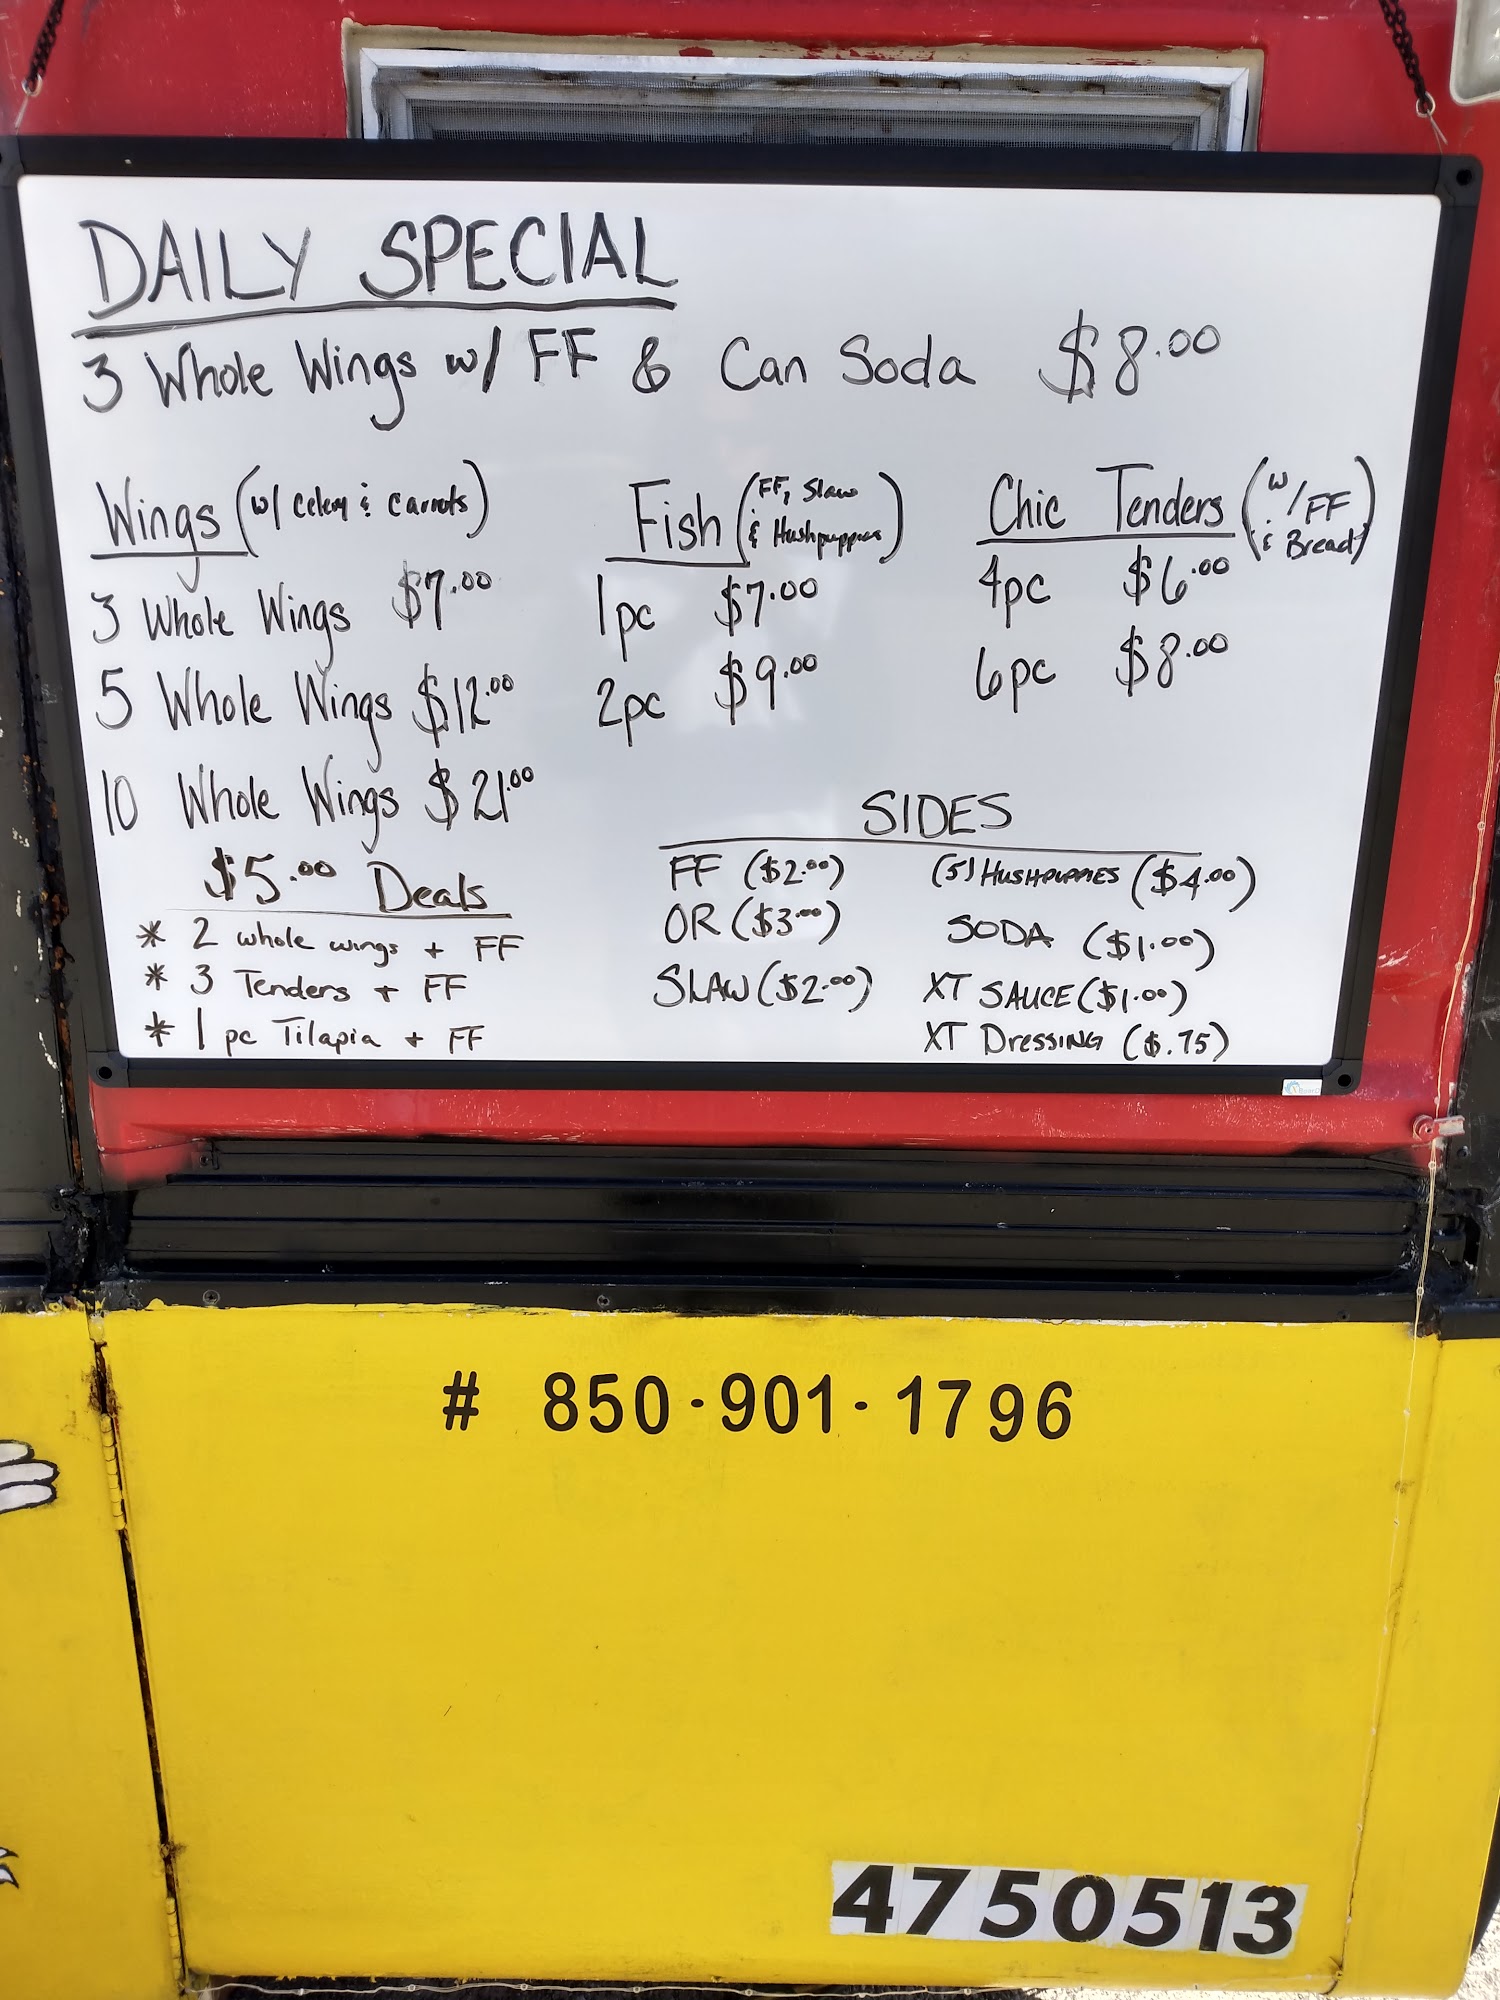 DAILY SPECIAL
3 Whole Wings w/ FF & Can Soda $8.00
Wings (w/ Celery & Carrots)
3 Whole Wings $7.00
5 Whole Wings $12.00
10 Whole Wings $21.00
$5.00 Deals
* 2 whole wings + FF
* 3 Tenders + FF
* 1 pc Tilapia + FF
Fish (FF, Slaw
& Hushpuppies)
1pc $7.00
2pc $9.00
Chic Tenders (w/FF
& Bread)
4pc $6.00
6pc $8.00
SIDES
FF ($2.00)
OR ($3.00)
SLAW ($2.00)
(5) HUSHPUPPIES ($4.00)
SODA ($1.00)
XT SAUCE ($1.00)
XT DRESSING ($.75)
# 850·901·1796
4750513